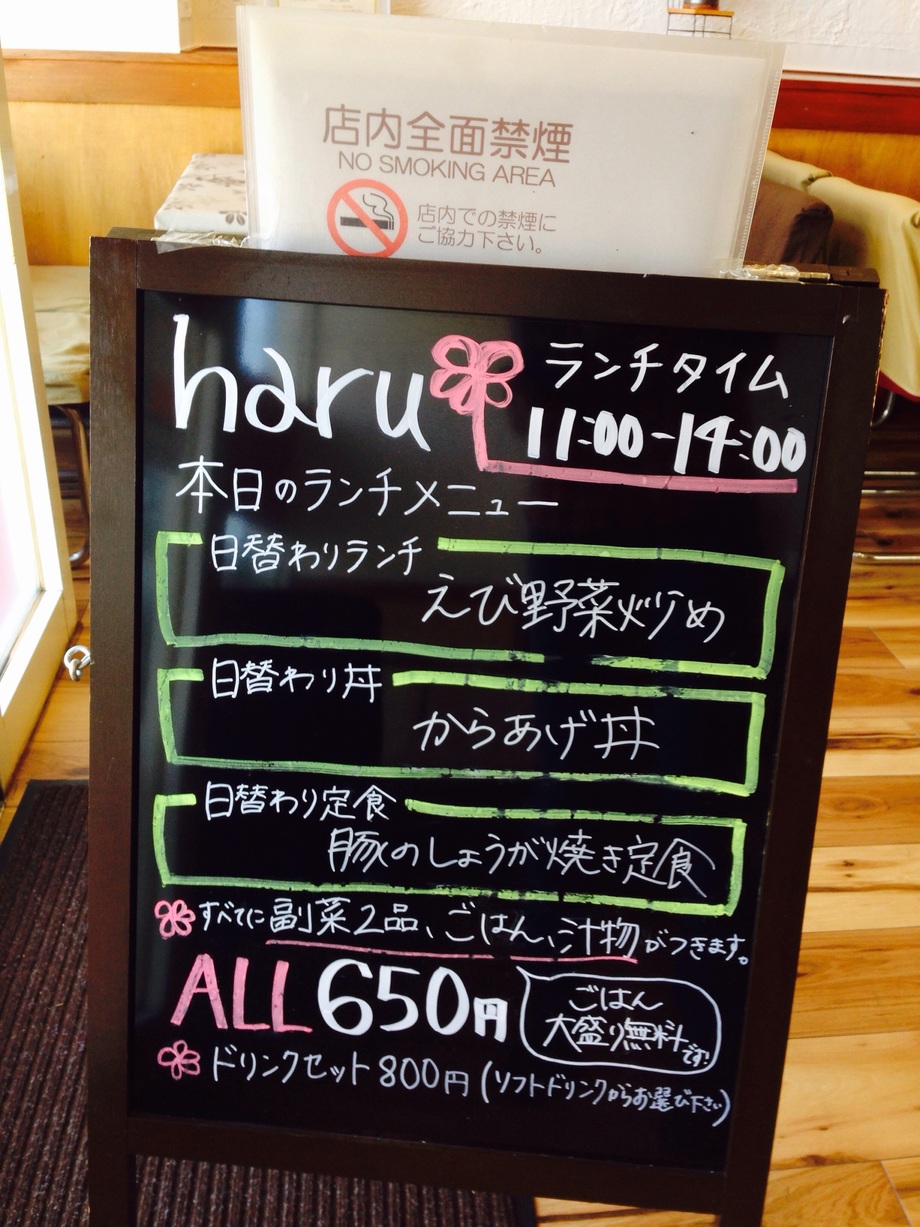 店内全面禁煙
NO SMOKING AREA
店内での禁煙に
ご協力下さい。
haru
ランチタイム
11:00-14:00
本日のランチメニュー
日替わりランチ
えび野菜炒め
日替わり丼
からあげ丼
日替わり定食
豚のしょうが焼き定食
すべてに副菜2品、ごはん、汁物がつきます。
ALL 650円
ごはん
大盛り無料です!
ドリンクセット 800円 (ソフトドリンクからお選び下さい)